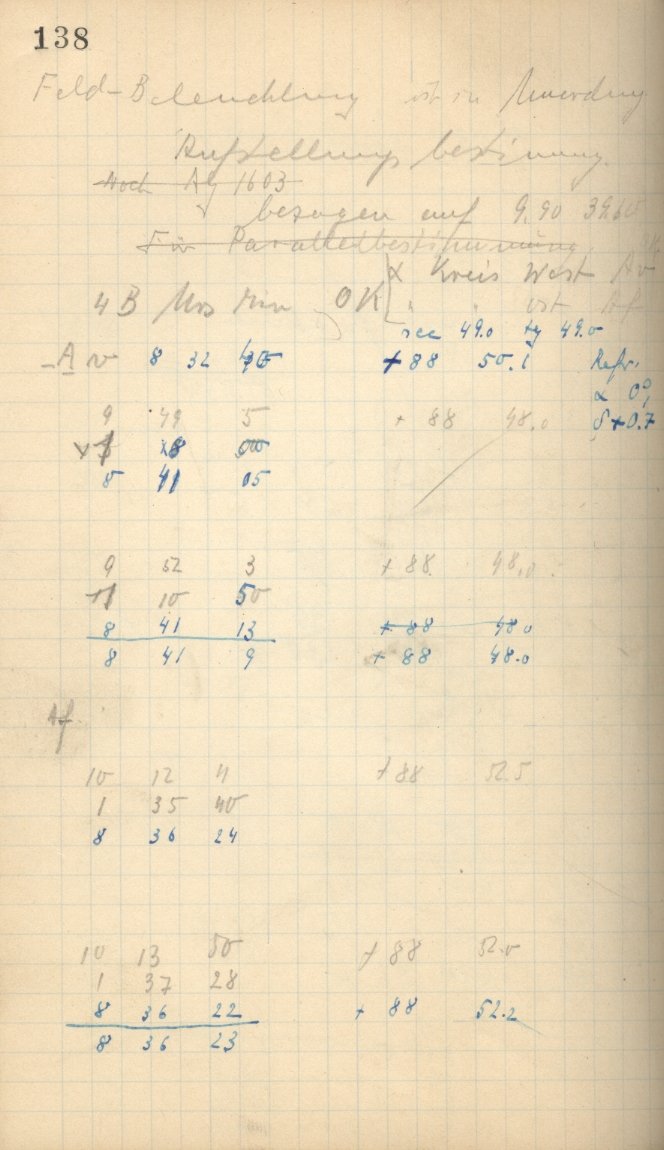 138
Feld-Beleuchtung ist in Anordnung
Aufstellungsbestimmung.
Noch Ag 1603
bezogen auf 9.90 39.60
Für Parallelbestimmung
α Kreis West Av
4 B Urs Min OK " " ost Af
rec 49.0 49.0
A v 8 32 +88 50.1 Refr.
α
9 49 5 + 88 48.0 δ +0.7
8 41 05
9 52 3 + 88 48.0
10 50
8 41 13 + 88 48.0
8 41 9 + 88 48.0
Af
10 12 4 + 88 52.5
1 35 40
8 36 24
10 13 50 + 88 52.0
1 37 28
8 36 22 + 88 52.2
8 36 23